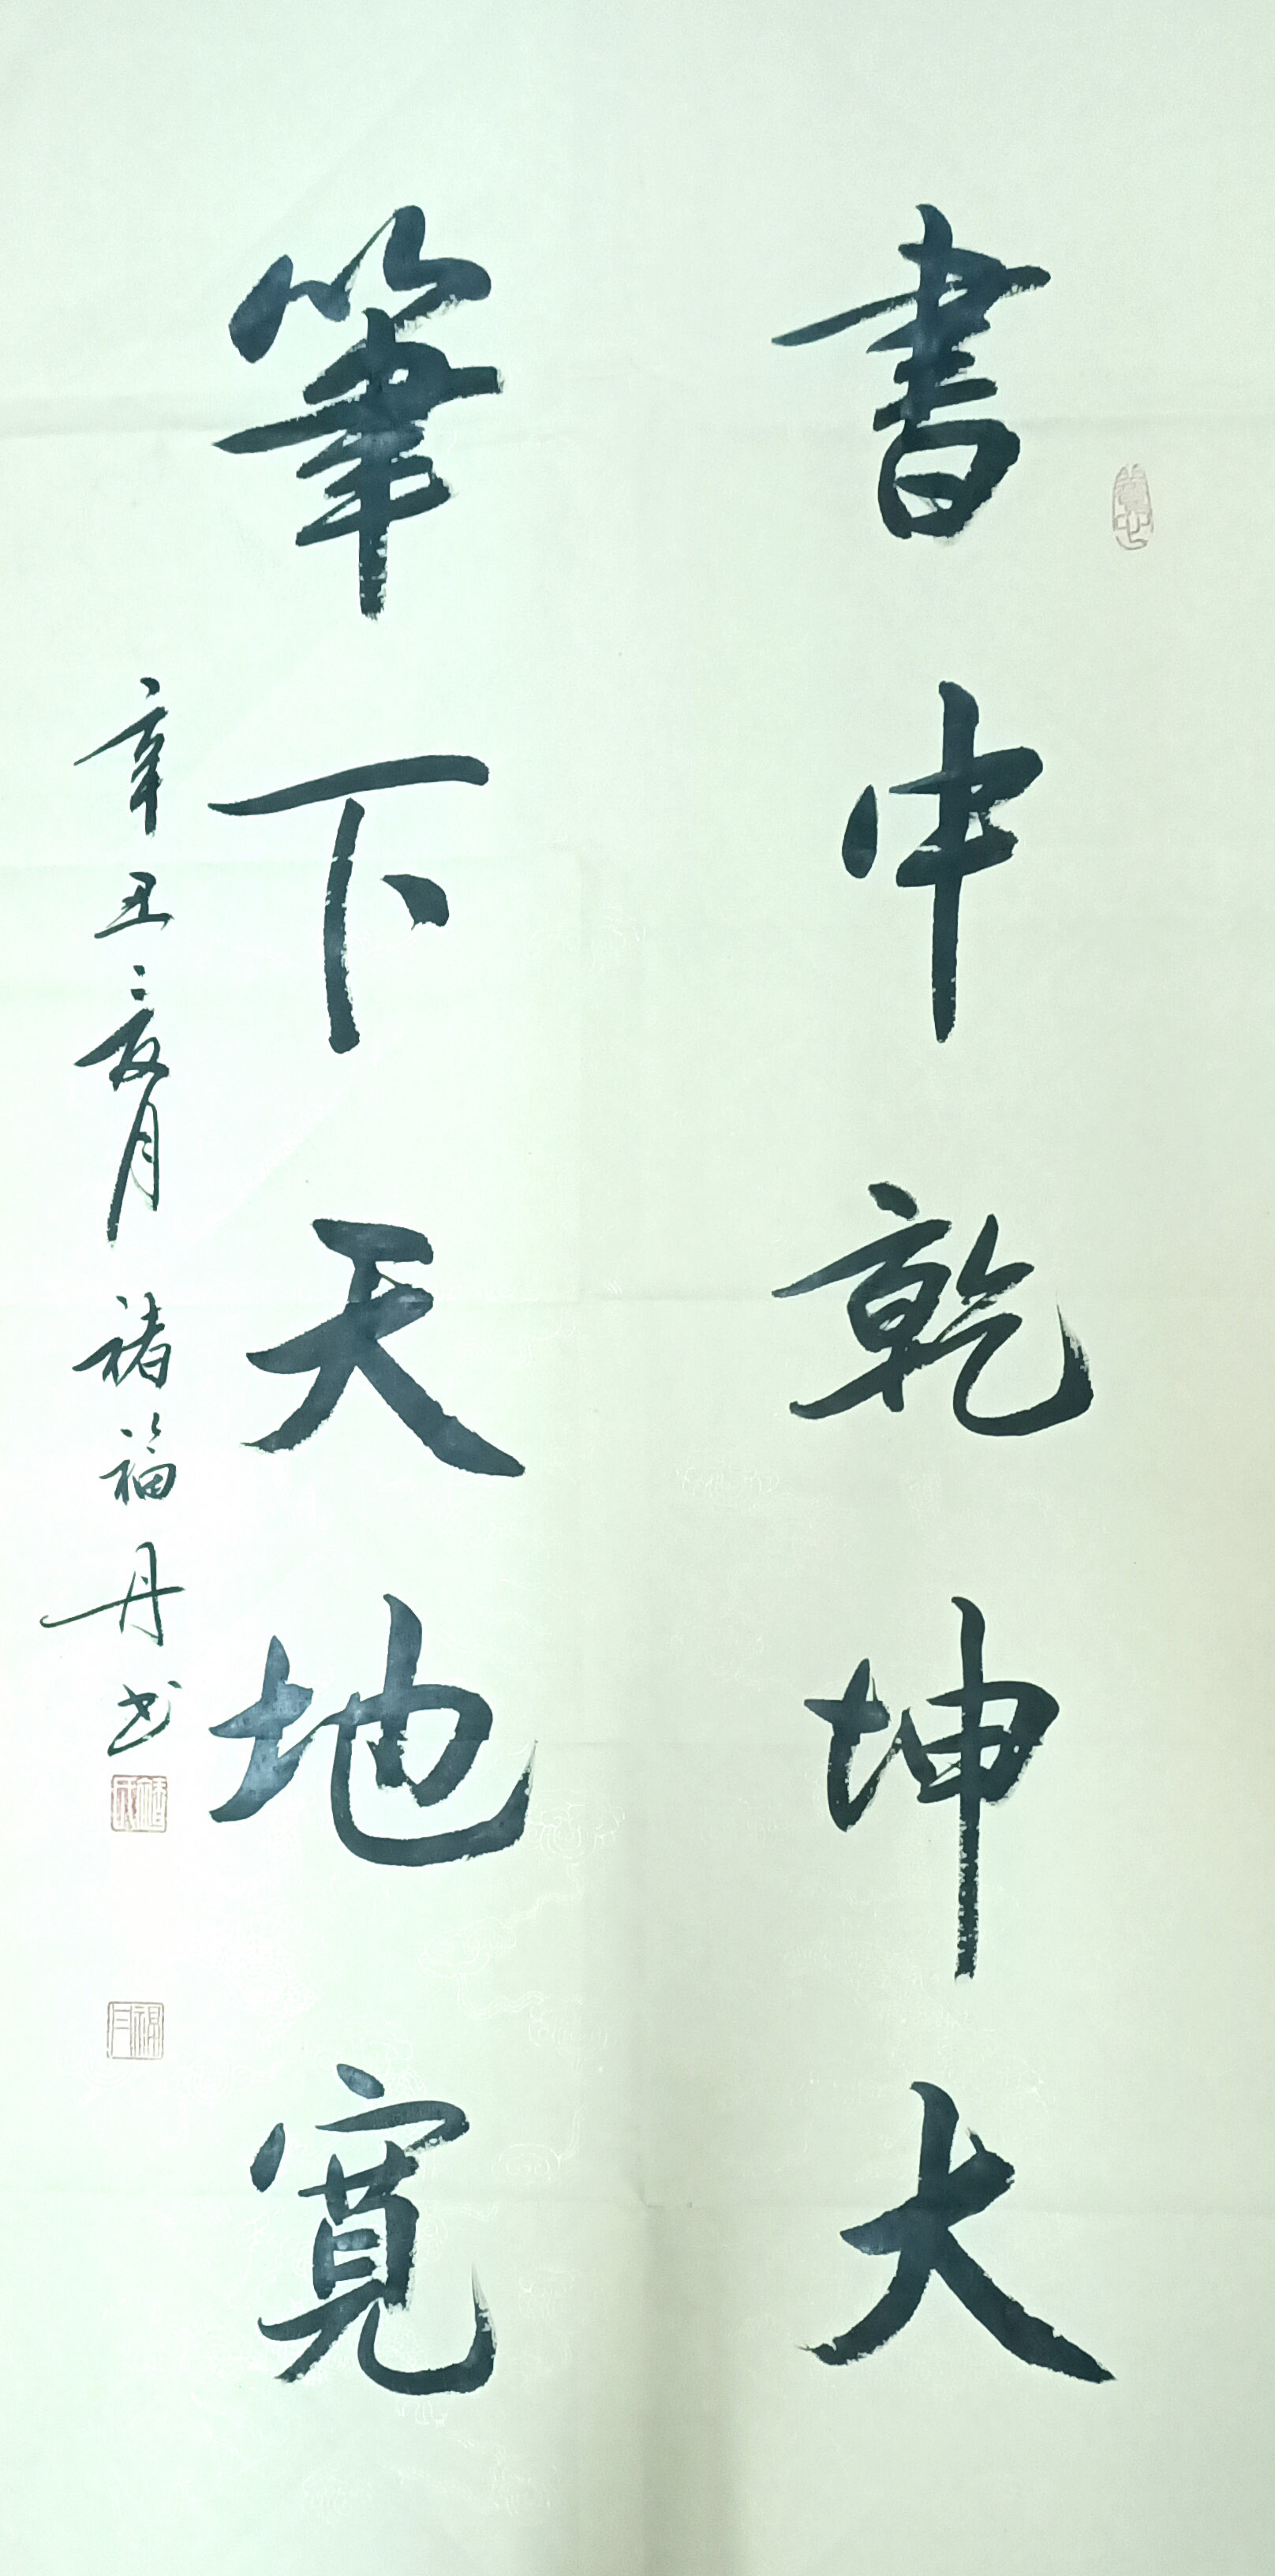 書中乾坤大
筆下天地寬
辛丑之夏月 褚福丹书